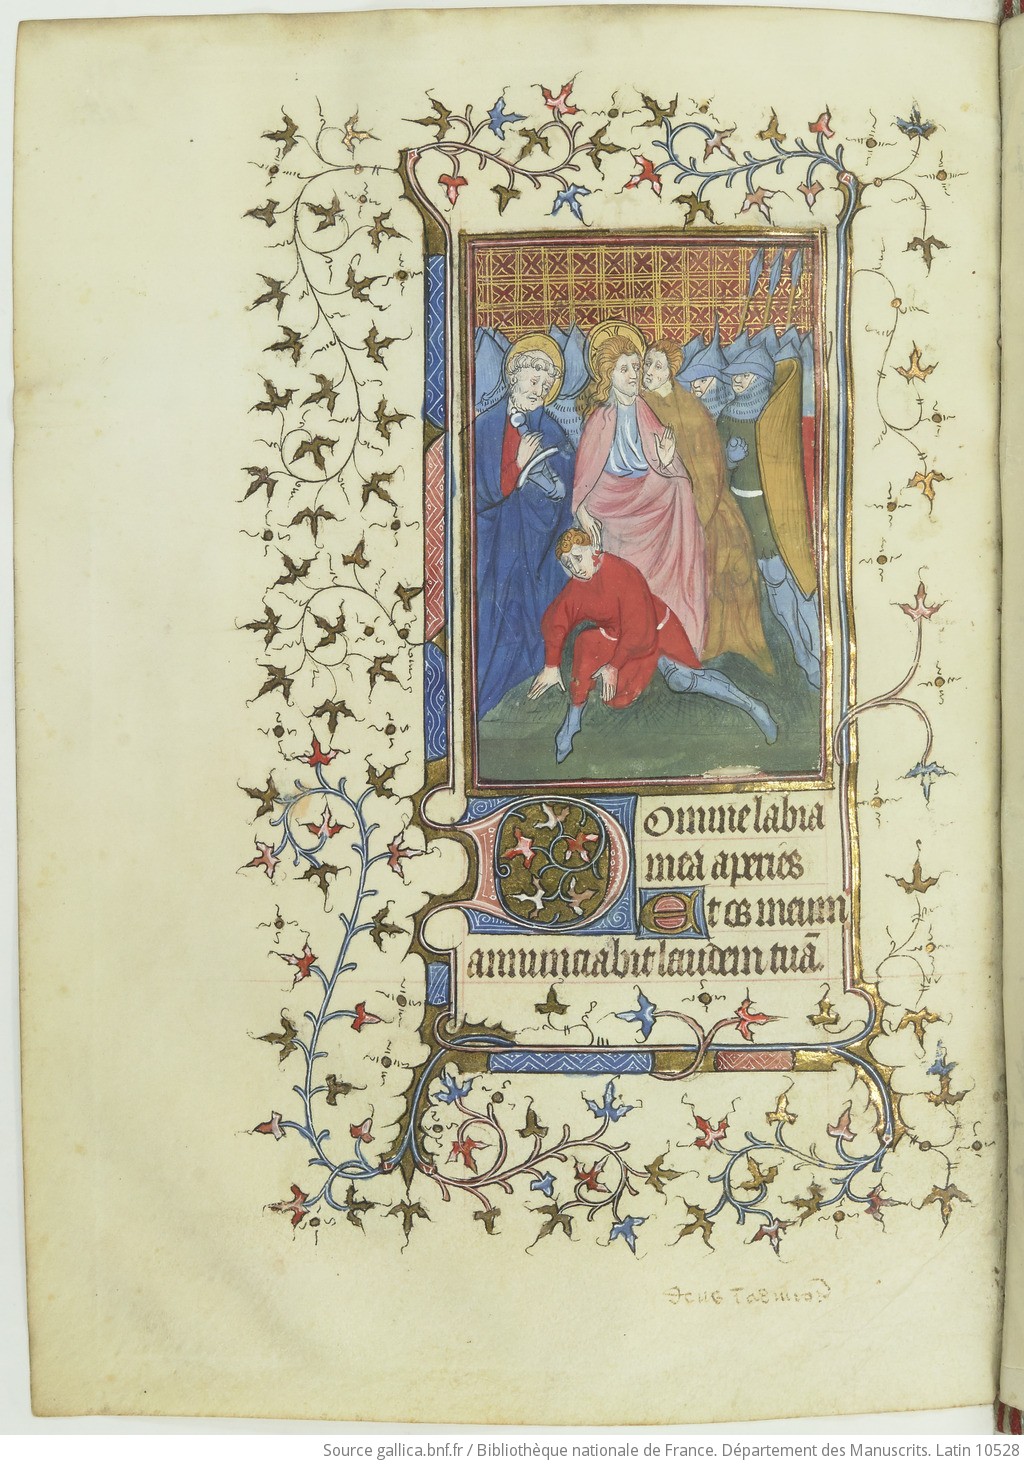 Domine labia
mea aperies
Et os meum
annunciabit laudem tuā.
Deus
Source gallica.bnf.fr / Bibliothèque nationale de France. Département des Manuscrits. Latin 10528